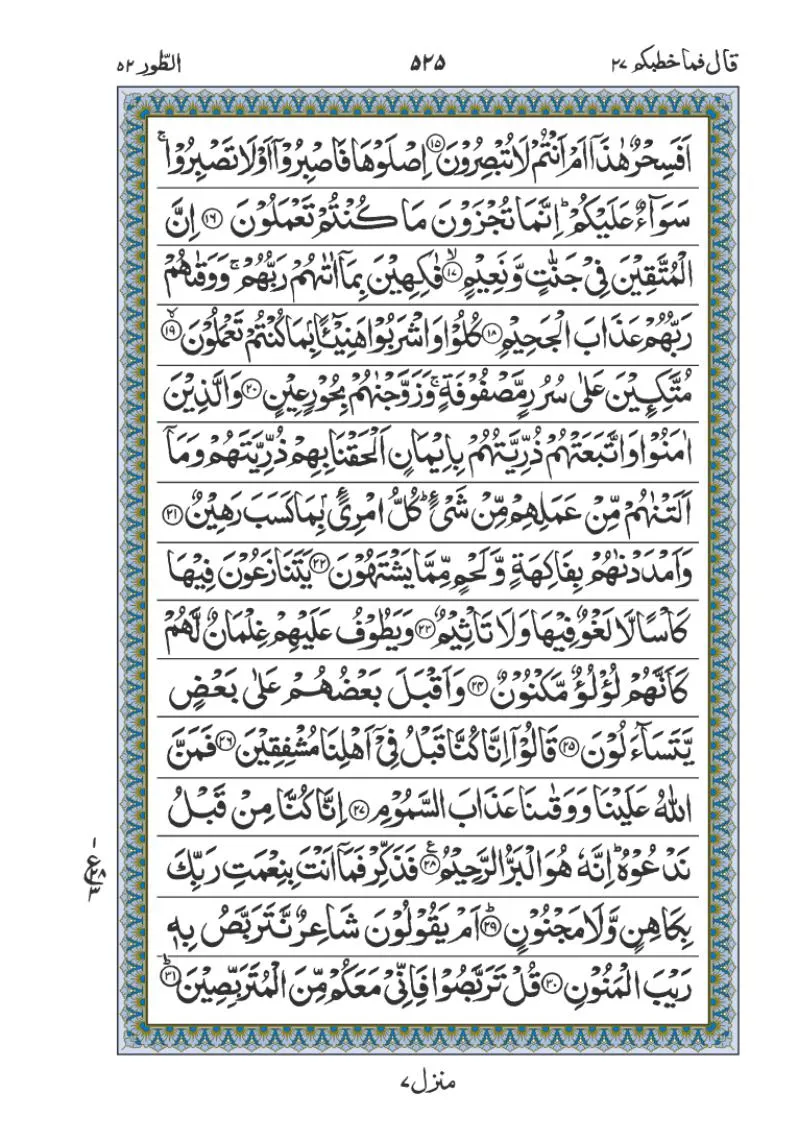 قال فما خطبكم ٢٧ ٥٢٥ الطّور ٥٢
اَفَسِحْرٌ هٰذَاۤ اَمْ اَنْتُمْ لَا تُبْصِرُوْنَ ﴿۱۵﴾ اِصْلَوْهَا فَاصْبِرُوْۤا اَوْ لَا تَصْبِرُوْا ۚ
سَوَآءٌ عَلَيْكُمْ ؕ اِنَّمَا تُجْزَوْنَ مَا كُنْتُمْ تَعْمَلُوْنَ ﴿۱۶﴾ اِنَّ
الْمُتَّقِيْنَ فِيْ جَنّٰتٍ وَّ نَعِيْمٍ ﴿۱۷﴾ ۙ فٰكِهِيْنَ بِمَاۤ اٰتٰىهُمْ رَبُّهُمْ ۚ وَ وَقٰىهُمْ
رَبُّهُمْ عَذَابَ الْجَحِيْمِ ﴿۱۸﴾ كُلُوْا وَ اشْرَبُوْا هَنِيْٓـًٔۢا بِمَا كُنْتُمْ تَعْمَلُوْنَ ﴿۱۹﴾ ۙ
مُتَّكِـِٕيْنَ عَلٰى سُرُرٍ مَّصْفُوْفَةٍ ۚ وَ زَوَّجْنٰهُمْ بِحُوْرٍ عِيْنٍ ﴿۲۰﴾ وَ الَّذِيْنَ
اٰمَنُوْا وَ اتَّبَعَتْهُمْ ذُرِّيَّتُهُمْ بِاِيْمَانٍ اَلْحَقْنَا بِهِمْ ذُرِّيَّتَهُمْ وَ مَاۤ
اَلَتْنٰهُمْ مِّنْ عَمَلِهِمْ مِّنْ شَيْءٍ ؕ كُلُّ امْرِئٍۭ بِمَا كَسَبَ رَهِيْنٌ ﴿۲۱﴾
وَ اَمْدَدْنٰهُمْ بِفَاكِهَةٍ وَّ لَحْمٍ مِّمَّا يَشْتَهُوْنَ ﴿۲۲﴾ يَتَنَازَعُوْنَ فِيْهَا
كَاْسًا لَّا لَغْوٌ فِيْهَا وَ لَا تَاْثِيْمٌ ﴿۲۳﴾ وَ يَطُوْفُ عَلَيْهِمْ غِلْمَانٌ لَّهُمْ
كَاَنَّهُمْ لُؤْلُؤٌ مَّكْنُوْنٌ ﴿۲۴﴾ وَ اَقْبَلَ بَعْضُهُمْ عَلٰى بَعْضٍ
يَّتَسَآءَلُوْنَ ﴿۲۵﴾ قَالُوْۤا اِنَّا كُنَّا قَبْلُ فِيْۤ اَهْلِنَا مُشْفِقِيْنَ ﴿۲۶﴾ فَمَنَّ
اللّٰهُ عَلَيْنَا وَ وَقٰىنَا عَذَابَ السَّمُوْمِ ﴿۲۷﴾ اِنَّا كُنَّا مِنْ قَبْلُ
نَدْعُوْهُ ؕ اِنَّهٗ هُوَ الْبَرُّ الرَّحِيْمُ ﴿۲۸﴾ ع فَذَكِّرْ فَمَاۤ اَنْتَ بِنِعْمَتِ رَبِّكَ
۱ ع ۲۸ ۳
بِكَاهِنٍ وَّ لَا مَجْنُوْنٍ ﴿۲۹﴾ ؕ اَمْ يَقُوْلُوْنَ شَاعِرٌ نَّتَرَبَّصُ بِهٖ
رَيْبَ الْمَنُوْنِ ﴿۳۰﴾ قُلْ تَرَبَّصُوْا فَاِنِّيْ مَعَكُمْ مِّنَ الْمُتَرَبِّصِيْنَ ﴿۳۱﴾ ؕ
منزل ٧